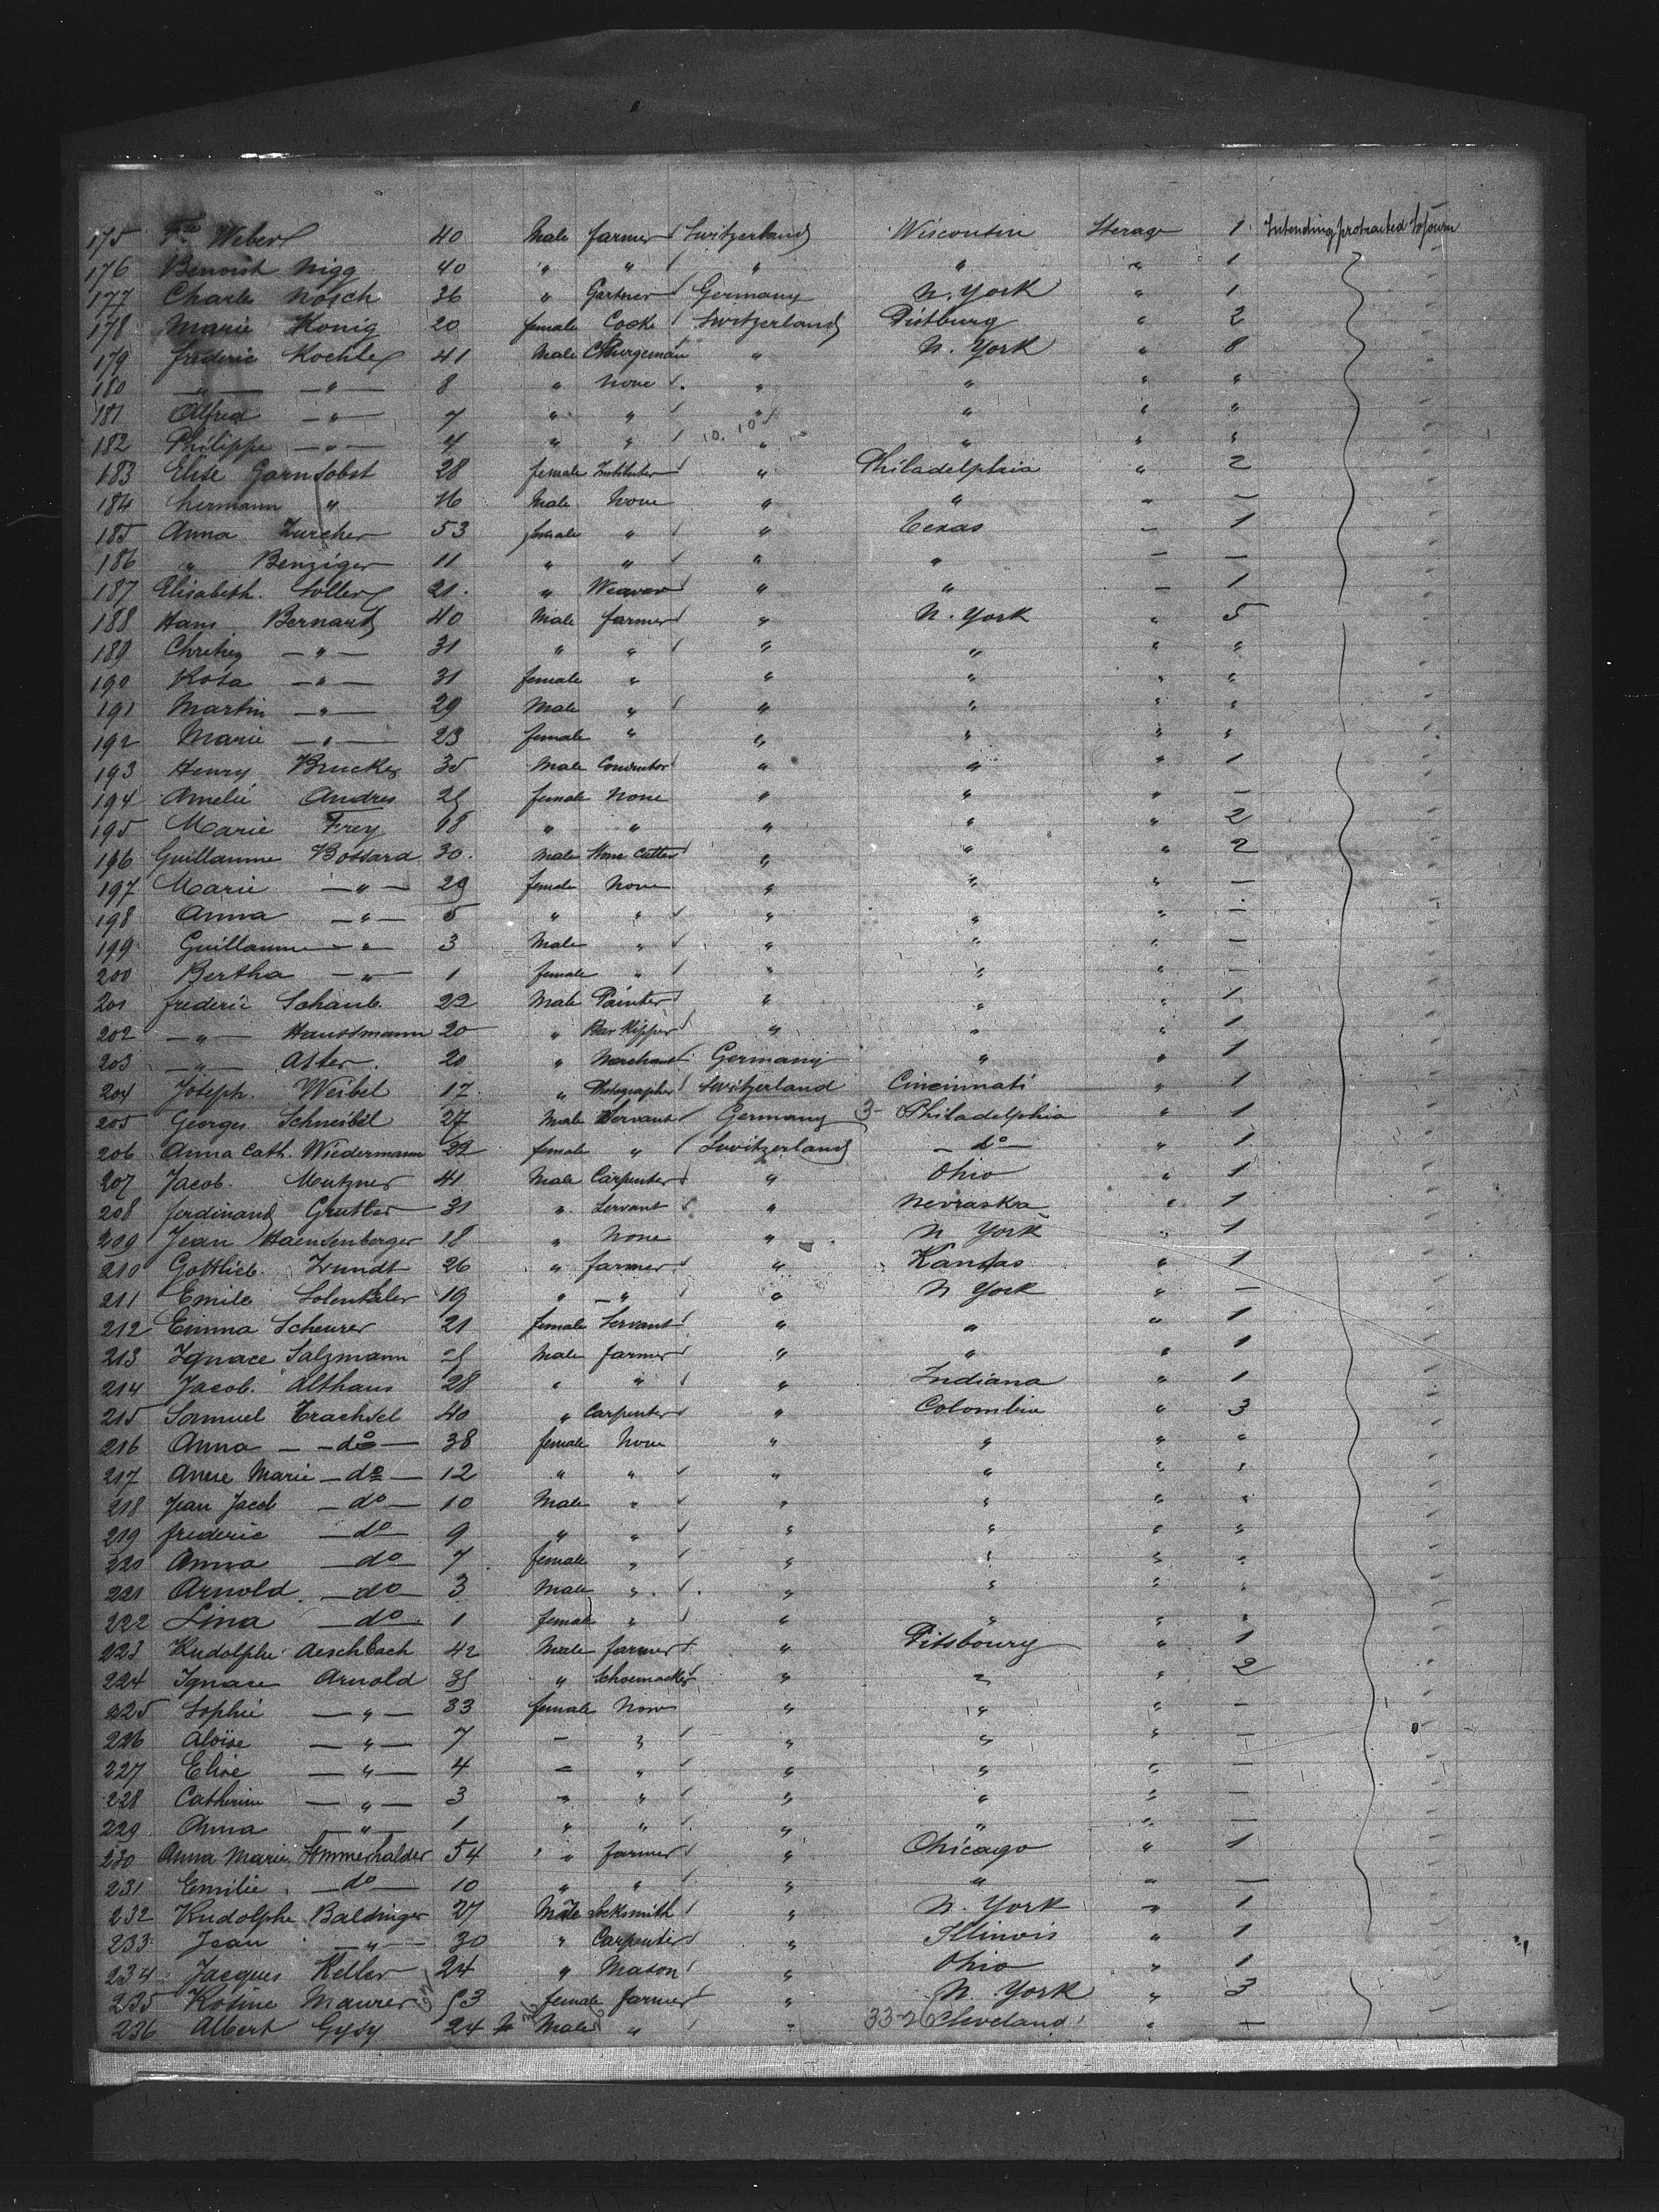 175 Fre Weber 40 Male farmer Switzerland Wisconsin Sterage 1 Intending protracted Sojourn
176 Benoist Nigg 40 " " " " " 1
177 Charles Nosch 36 " Gartner Germany N. York " 1
178 Marie Konig 20 female Cooke Switzerland Pittburg " 2
179 frederic Kochle 41 Male " N. York " 8
180 " " 8 " None " " " "
181 Alfred " 7 " " " " " "
182 Philippe " 4 " " " " " "
183 Elise Garnsobst 28 female Instituter " Philadelphia " 2
184 hermann " 16 Male None " " " —
185 Anna Zurcher 53 female " " Texas — 1
186 " Benziger 11 " " " " — —
187 Elisabeth Soller 21 " Weaver " " — 1
188 Hans Bernard 40 Male farmer " N. York " 5
189 " 31 " " " " " "
190 Rosa " 31 female " " " " "
191 Martin " 29 Male " " " " "
192 Marie " 23 female " " " " "
193 Henry Brucker 35 Male Conductor " " " 1
194 Amelie Andres 25 female None " " " —
195 Marie Frey 18 " " " " " 2
196 Guillaume Bossard 30 Male Cutter " " " 2
197 Marie " 29 female None " " " —
198 Anna " 5 " " " " " —
199 Guillaume " 3 Male " " " " —
200 Bertha " 1 female " " " " —
201 frederic Schaub 22 Male Painter " " " 1
202 " Haussmann 20 " Bar Kipper " " " 1
203 " Aster 20 " Merchant Germany " " 1
204 Joseph Weibel 17 " Photographer Switzerland Cincinnati " 1
205 Georges Schneibel 27 Male Servant Germany 3- Philadelphia " 1
206 Anna Cath. Wiedermann 22 female " Switzerland — do — " 1
207 Jacob Mutzner 41 Male Carpenter " Ohio " 1
208 ferdinand Grutter 31 " Servant " Nevraska " 1
209 Jean Haensenberger 18 " None " N York " 1
210 Gottlieb Zrundt 26 " farmer " Kansas " 1
211 Emile 19 " " " N York " —
212 Emma Scheurer 21 female Servant " " " 1
213 Ignace Salzmann 25 Male farmer " " " 1
214 Jacob Althaus 28 " " " Indiana " 1
215 Samuel Trachsel 40 " Carpenter " Colombia " 3
216 Anna — do — 38 female None " " " "
217 Anne Marie — do — 12 " " " " " "
218 Jean Jacob — do — 10 Male " " " " "
219 frederic — do — 9 " " " " " "
220 Anna — do — 7 female " " " " "
221 Arnold — do — 3 Male " " " " "
222 Lina — do — 1 female " " " " "
223 Rudolphe Aeschbach 42 Male farmer " Pitsbourg " 1
224 Ignace Arnold 35 " Schoemacker " " " 2
225 Sophie — " — 33 female None " " " —
226 Aloïse — " — 7 — " " " " —
227 Elise — " — 4 — " " " " —
228 Catherine — " — 3 " " " " " —
229 Anna — " — 1 " " " " " —
230 Anna Marie Hemmerhalder 54 " farmer " Chicago " 1
231 Emilie — do — 10 " " " " " —
232 Rudolphe Baldinger 27 Male Locksmith " N. York " 1
233 Jean — " — 30 " Carpenter " Illinois " 1
234 Jacques Keller 24 " Mason " Ohio " 1
235 Rosine Maurer 53 female farmer " N. York " 3
236 Albert Gysy 24 Male " " 33-26 Cleveland " —